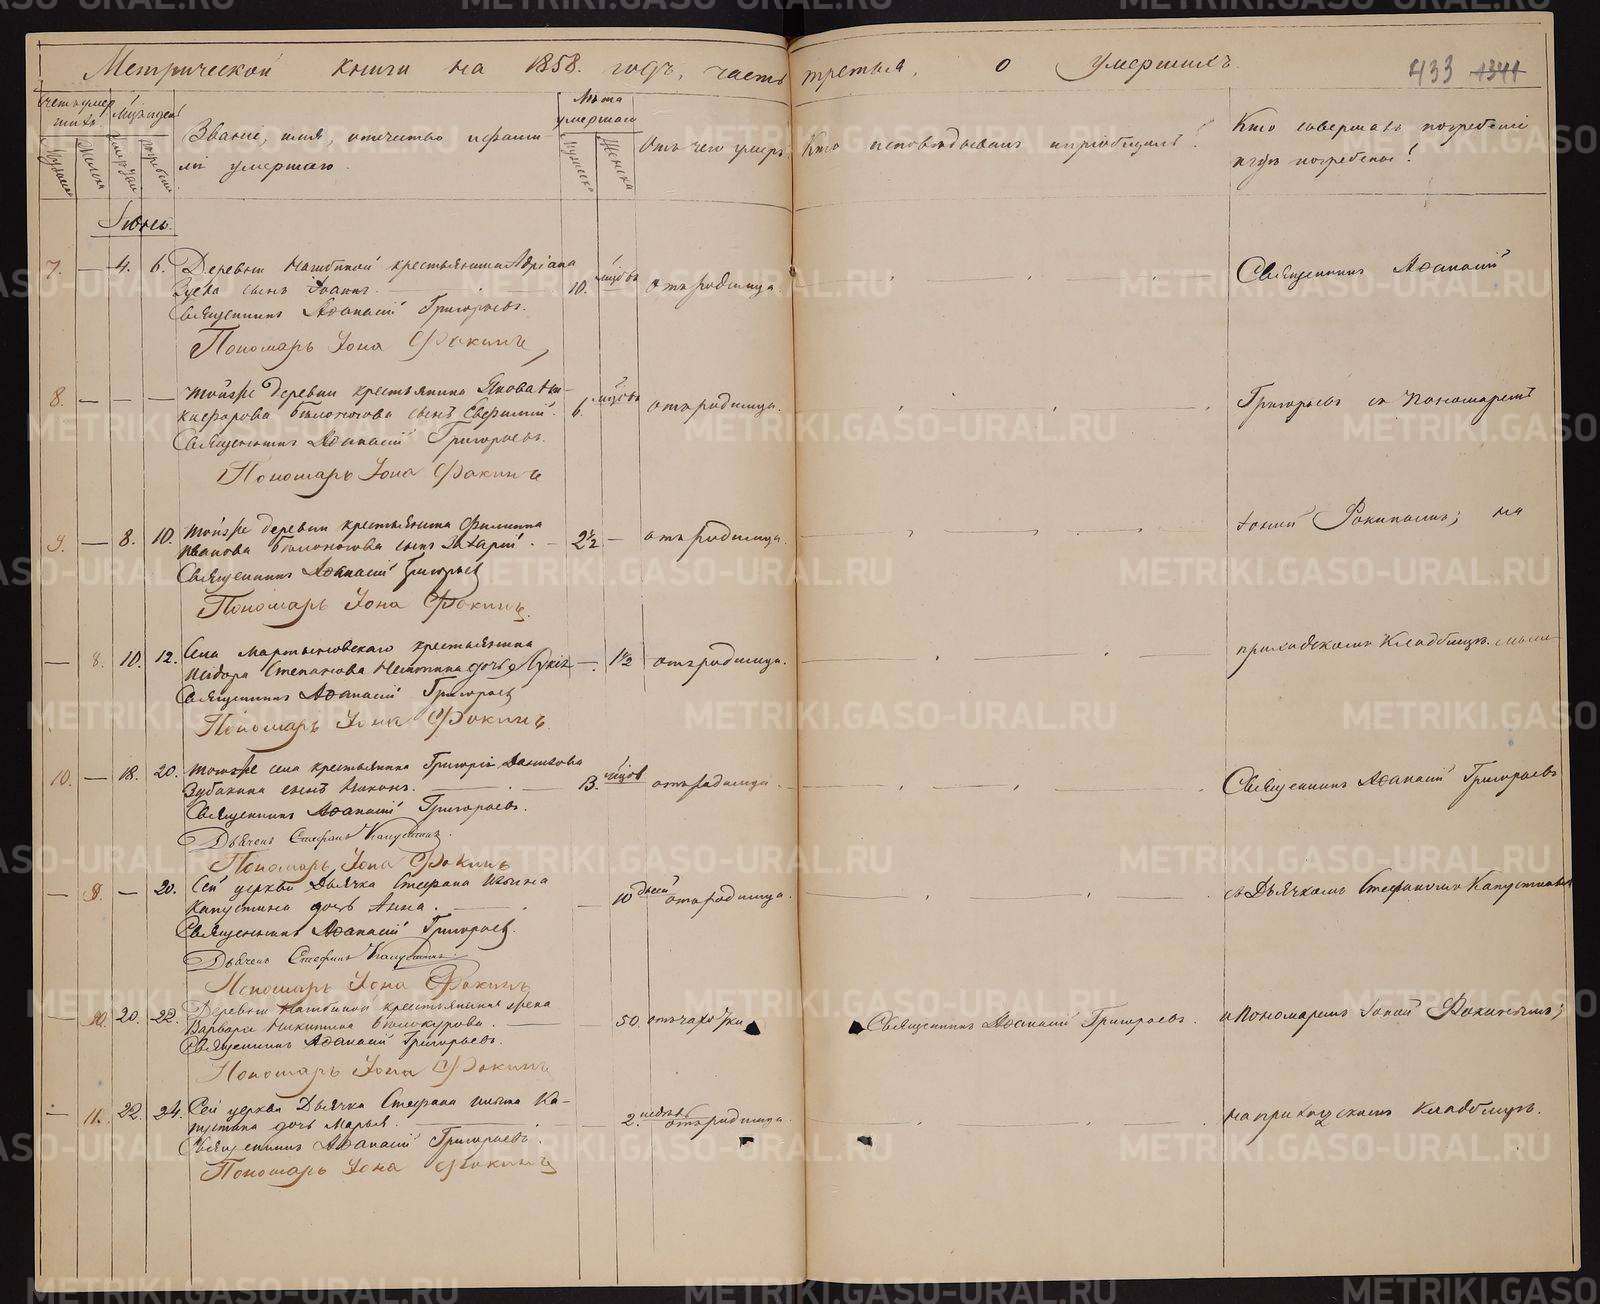 Метрической книги на 1858. годъ, часть третья, о умершихъ.
433 1341
Счетъ умершихъ
Мужеска
Женска
Мѣсяцъ и день
смерти
погребенія
Званіе, имя, отечество и фами-
лія умершаго.
Лѣта умершаго
Мужеска
Женска
Отъ чего умеръ.
Кто исповѣдывалъ и пріобщалъ?
Кто совершалъ погребеніе
и гдѣ погребены?
Іюнь.
7. — 4. 6. Деревни крестьянина Адріана
сынъ Іоаннъ. 10. мѣсяц. отъ родимца.
Священникъ Аѳанасій Григорьевъ.
Пономарь Іона Фокинъ
Священникъ Аѳанасій
8. — — — Той же деревни крестьянина Якова Ни-
кифорова Бѣлоногова сынъ 6. мѣсяц. отъ родимца.
Священникъ Аѳанасій Григорьевъ.
Пономарь Іона Фокинъ
Григорьевъ съ Пономаремъ
9. — 8. 10. Той же деревни крестьянина Филиппа
Иванова Бѣлоногова сынъ Захарій. — 2½ — отъ родимца.
Священникъ Аѳанасій Григорьевъ
Пономарь Іона Фокинъ.
Іоною Фокинымъ; на
— 8. 10. 12. Села Мартыновскаго крестьянина
Исидора Степанова дочь — 1½ отъ родимца.
Священникъ Аѳанасій Григорьевъ
Пономарь Іона Фокинъ
приходскомъ кладбищѣ.
10. — 18. 20. Того же села крестьянина Григорія Данилова
Зубакина сынъ Никонъ. 13. мѣсяцов отъ родимца.
Священникъ Аѳанасій Григорьевъ.
Дьячекъ Стефанъ Капустинъ.
Пономарь Іона Фокинъ
Священникъ Аѳанасій Григорьевъ
— 9. — 20. Сей церкви Дьячка Стефана Ильина
Капустина дочь Анна. — 10 дней отъ родимца.
Священникъ Аѳанасій Григорьевъ.
Дьячекъ Стефанъ Капустинъ.
Пономарь Іона Фокинъ
съ Дьячкомъ Стефаномъ Капустинымъ
— 10. 20. 22. Деревни крестьянина жена
Варвара Никитина Бѣлокурова. — 50. отъ чахотки
Священникъ Аѳанасій Григорьевъ.
Священникъ Аѳанасій Григорьевъ.
Пономарь Іона Фокинъ
и Пономаремъ Іоной Фокинымъ;
— 11. 22. 24. Сей церкви Дьячка Стефана Ильина Ка-
пустина дочь Марья. 2. недѣль отъ родимца.
Священникъ Аѳанасій Григорьевъ.
Пономарь Іона Фокинъ
на приходскомъ кладбищѣ.
METRIKI.GASO-URAL.RU